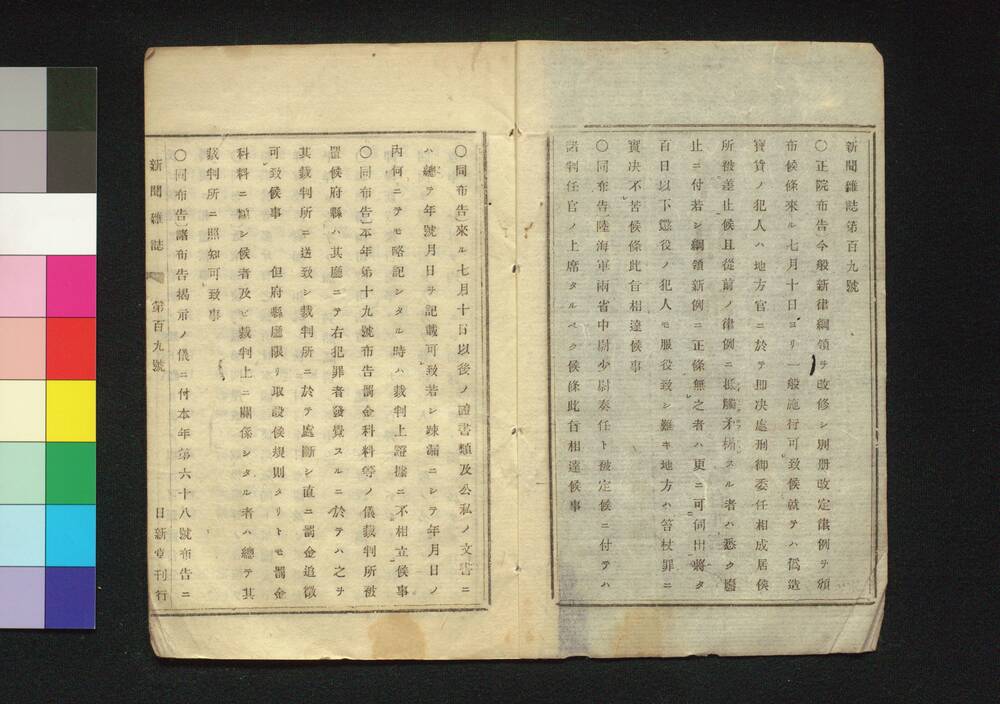 新聞雜誌第百九號
〇正院布告〕今般新律綱領ヲ改修シ別册改定律例ヲ頒
布候條來ル七月十日ヨリ一般施行可致候就テハ僞造
寶貨ノ犯人ハ地方官ニ於テ即决處刑御委任相成居候
所被差止候且從前ノ律例ニ抵觸矛楯スル者ハ悉ク廢
止ニ付若シ綱領新例ニ正條無之者ハ更ニ可伺出將タ
百日以下懲役ノ犯人モ服役致シ難キ地方ハ笞杖罪ニ
實决不苦候條此旨相達候事
〇同布告〕陸海軍兩省中尉少尉奏任ト被定候ニ付テハ
諸判任官ノ上席タルベク候條此旨相達候事
〇同布告〕來ル七月十日以後ノ證書類及公私ノ文書ニ
ハ總テ年號月日ヲ記載可致若シ疎漏ニシテ年月日ノ
内何ニテモ略記シタル時ハ裁判上證據ニ不相立候事
〇同布告〕本年第十九號布告罰金科料等ノ儀裁判所被
置候府縣ハ其廳ニテ右犯罪者發覺スルニ於テハ之ヲ
其裁判所ニ送致シ裁判所ニ於テ處斷シ直ニ罰金追徵
可致候事　但府縣廳限リ取設候規則タリトモ罰金
科料ニ類シ候者及ビ裁判上ニ關係シタル者ハ總テ其
裁判所ニ照知可致事
〇同布告〕諸布告揭示ノ儀ニ付本年第六十八號布告ニ
新聞雜誌　第百九號　日新堂刊行